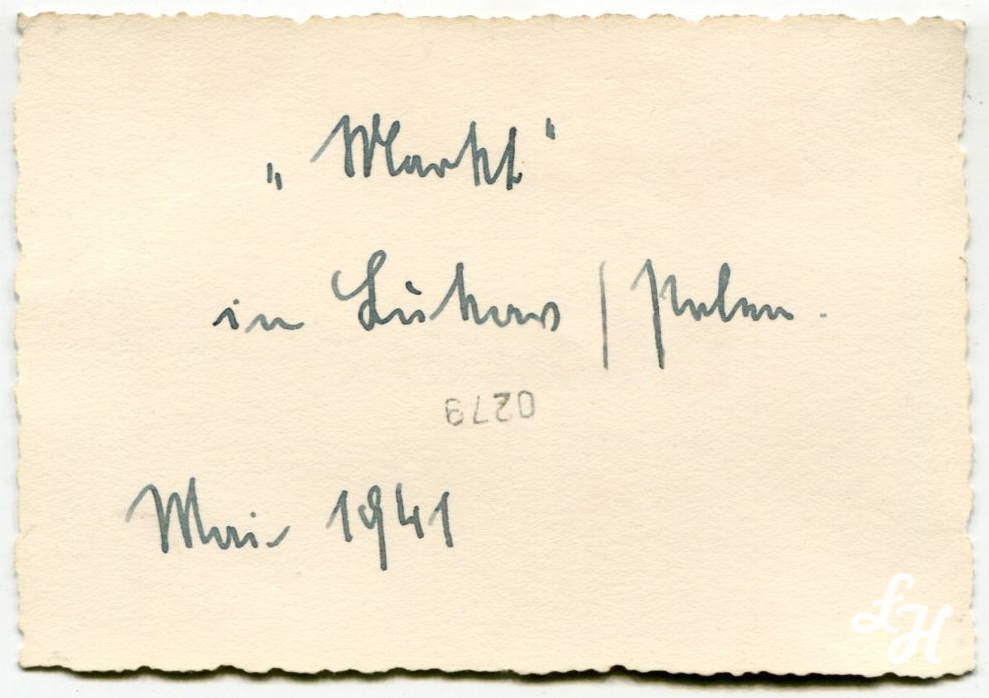 „Markt"
in Lukow / Polen.
0279
Mai 1941
LH